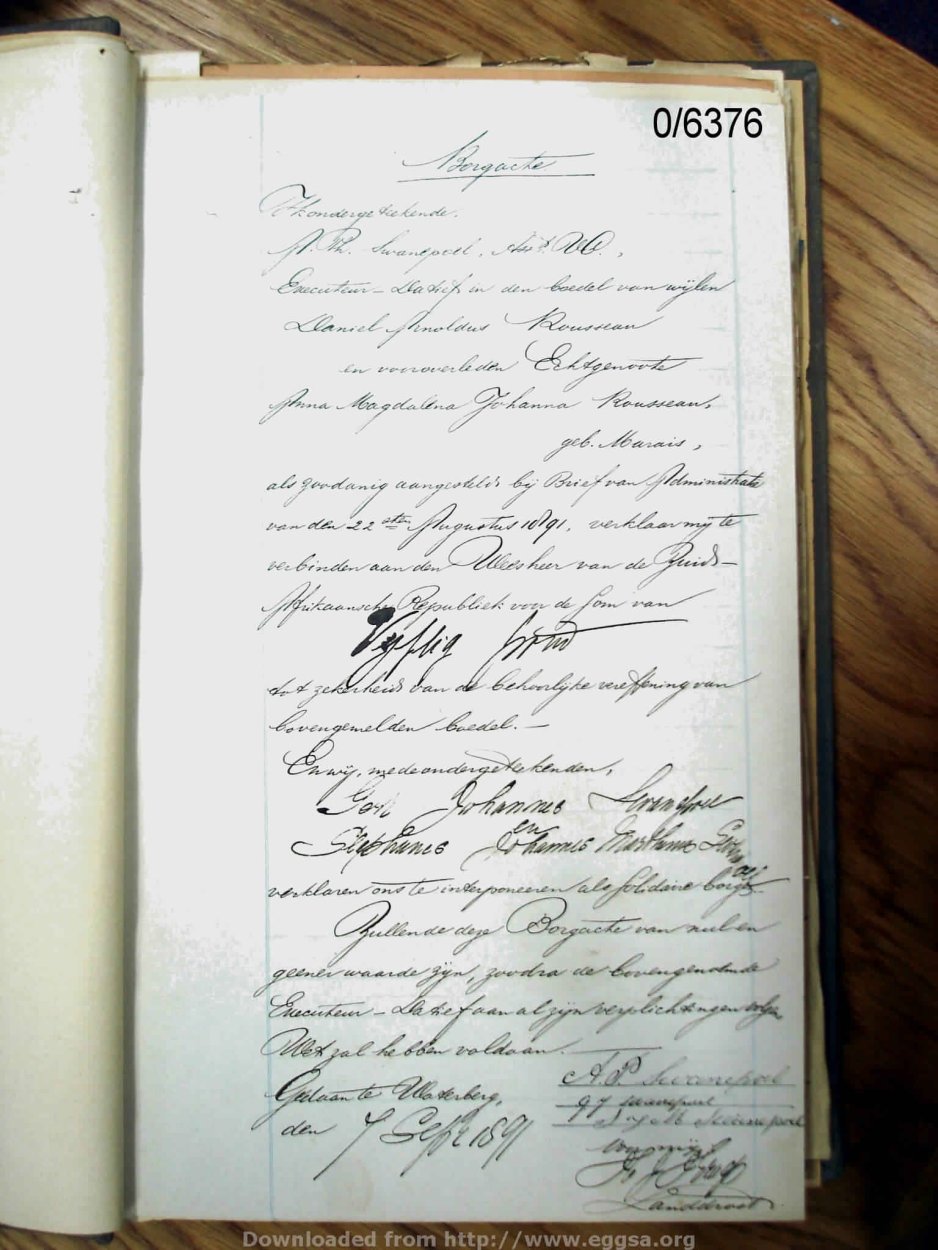 0/6376
Borgacte
Ik ondergeteekende,
A. Ph. Swanepoel,
Executeur-Datief in den boedel van wijlen
Daniel Arnoldus Rousseau
en vooroverleden Echtgenoote
Anna Magdalena Johanna Rousseau,
geb. Marais,
als zoodanig aangesteld bij Brief van Administratie
van den 22sten Augustus 1891, verklaar mij te
verbinden aan den Weesheer van de Zuid-
Afrikaansche Republiek voor de som van
Vyftig pond
tot zekerheid van de behoorlijke vereffening van
bovengemelden boedel.-
En wij, medeondergeteekenden,
Johannes Swanepoel
en
Stephanus Johannes Marthinus
verklaren ons te interponeeren als solidaire borgen
Zullende deze Borgacte van nul en
geener waarde zijn, zoodra de bovengenoemde
Executeur-Datief aan al zijn verplichtingen volgens
Wet zal hebben voldaan.
Gedaan te Waterberg, A. P. Swanepoel
den 7 Sept 1891 G J Swanepoel
Swanepoel
Voor mij
Landdrost
Downloaded from http://www.eggsa.org